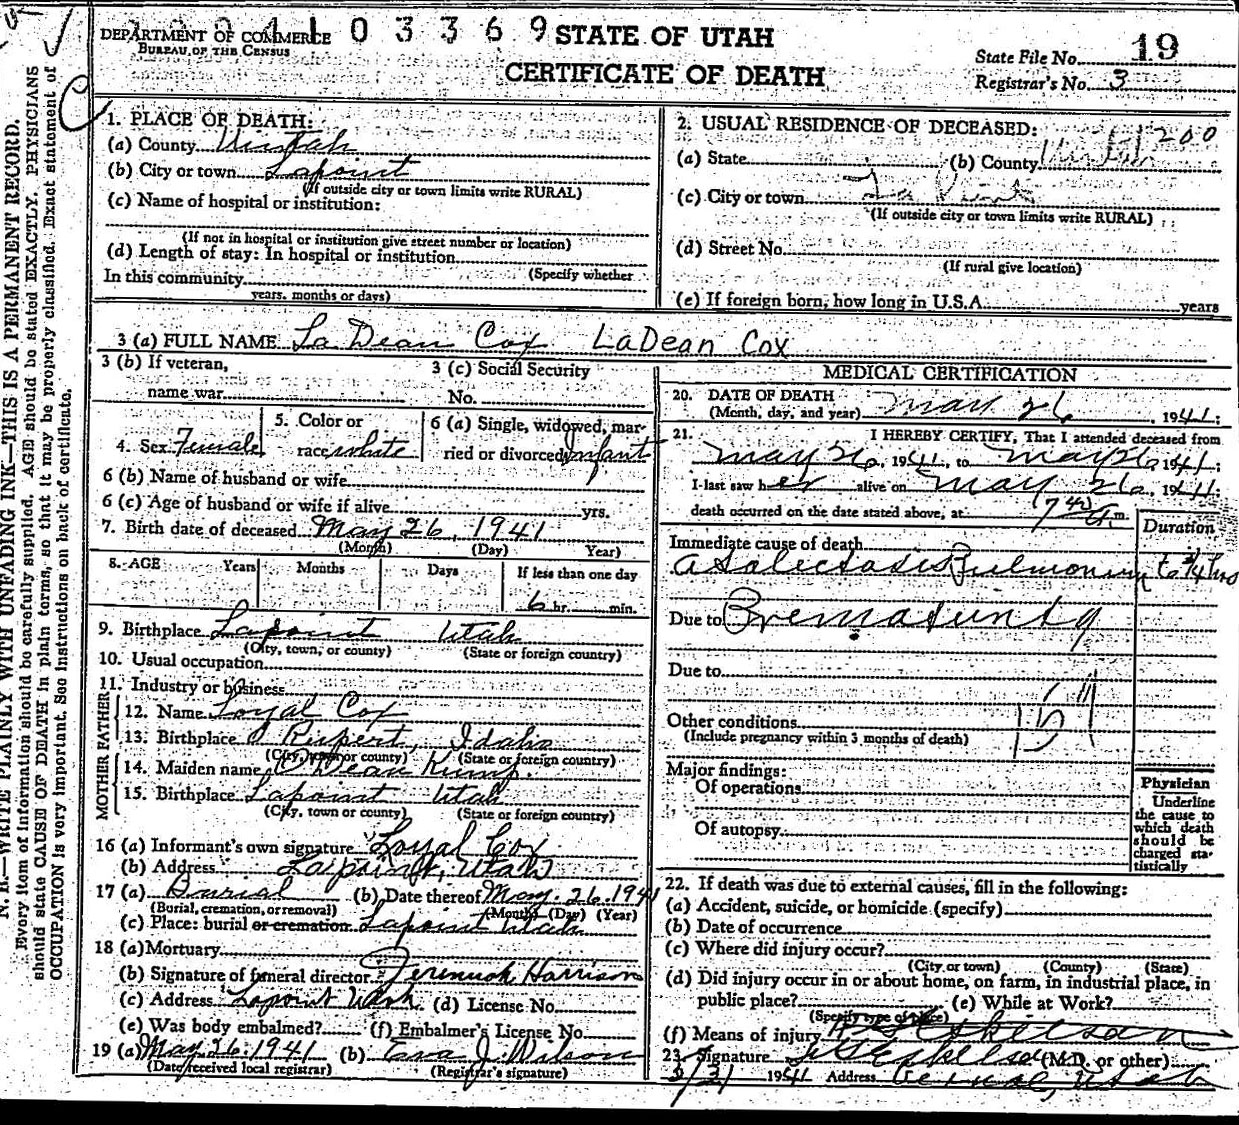 DEPARTMENT OF COMMERCE
BUREAU OF THE CENSUS
2 9 0 4 1 0 3 3 6 9
STATE OF UTAH
CERTIFICATE OF DEATH
State File No. 19
Registrar's No. 3
N. B.—WRITE PLAINLY WITH UNFADING INK—THIS IS A PERMANENT RECORD.
Every item of information should be carefully supplied. AGE should be stated EXACTLY. PHYSICIANS
should state CAUSE OF DEATH in plain terms, so that it may be properly classified. Exact statement of
OCCUPATION is very important. See instructions on back of certificate.
1. PLACE OF DEATH:
(a) County Uintah
(b) City or town Lapoint
(If outside city or town limits write RURAL)
(c) Name of hospital or institution:
(If not in hospital or institution give street number or location)
(d) Length of stay: In hospital or institution
(Specify whether
In this community
years, months or days)
2. USUAL RESIDENCE OF DECEASED: 200
(a) State (b) County Uintah
(c) City or town La Point
(If outside city or town limits write RURAL)
(d) Street No.
(If rural give location)
(e) If foreign born, how long in U.S.A. years
3 (a) FULL NAME La Dean Cox LaDean Cox
3 (b) If veteran,
name war
3 (c) Social Security
No.
4. Sex Female
5. Color or
race white
6 (a) Single, widowed, mar-
ried or divorced Infant
6 (b) Name of husband or wife
6 (c) Age of husband or wife if alive yrs.
7. Birth date of deceased May 26, 1941
(Month) (Day) Year)
8. AGE Years Months Days If less than one day
6 hr. min.
9. Birthplace Lapoint Utah
(City, town, or county) (State or foreign country)
10. Usual occupation
11. Industry or business
FATHER
12. Name Loyal Cox
13. Birthplace Rupert, Idaho
(City, town or county) (State or foreign country)
MOTHER
14. Maiden name Dean Kump
15. Birthplace Lapoint Utah
(City, town or county) (State or foreign country)
16 (a) Informant's own signature Loyal Cox
(b) Address Lapoint, Utah
17 (a) Burial (b) Date thereof May 26, 1941
(Burial, cremation, or removal) (Month) (Day) (Year)
(c) Place: burial or cremation Lapoint Utah
18 (a) Mortuary
(b) Signature of funeral director Jeremiah Harrison
(c) Address Lapoint Utah (d) License No.
(e) Was body embalmed? (f) Embalmer's License No.
19 (a) May 26, 1941 (b) Eva J. Wilson
(Date received local registrar) (Registrar's signature)
MEDICAL CERTIFICATION
20. DATE OF DEATH
(Month, day, and year) May 26, 1941;
21. I HEREBY CERTIFY, That I attended deceased from
May 26, 1941, to May 26 1941;
I last saw her alive on May 26, 1941;
death occurred on the date stated above, at 7 40 A m.
Duration
Immediate cause of death
Atalectasis Pulmonium 6 3/4 hrs
Due to Prematurity
Due to
Other conditions
(Include pregnancy within 3 months of death)
Major findings:
Of operations
Of autopsy
Physician
Underline
the cause to
which death
should be
charged sta-
tistically
22. If death was due to external causes, fill in the following:
(a) Accident, suicide, or homicide (specify)
(b) Date of occurrence
(c) Where did injury occur?
(City or town) (County) (State)
(d) Did injury occur in or about home, on farm, in industrial place, in
public place? (e) While at Work?
(Specify type of place)
(f) Means of injury
23. Signature (M.D. or other)
1941 Address Vernal, Utah